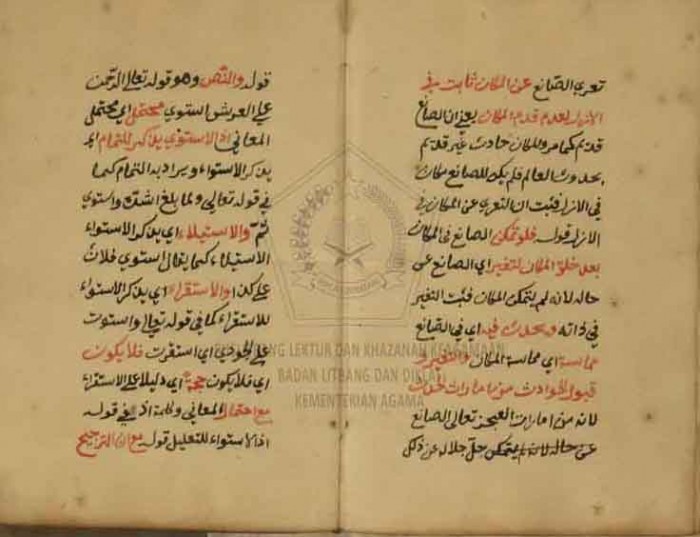 تعري الصانع عن المكان ثابت في
الازل لعدم قدم المكان يعني ان الصانع
قديم كما مر والمكان حادث غير قديم
بحدوث العالم فلم يكن للصانع مكان
في الازل فثبت ان التعري عن المكان في
الازل قوله فلو تمكن الصانع في المكان
بعد خلق المكان لتغير اي الصانع عن
حاله لانه لم يتمكن المكان فثبت التغير
في ذاته ويحدث فيه اي في الصانع
مماسة اي مماسة المكان والتغير
قبول الحوادث من امارات الحدث
لانه من امارات العجز تعالى الصانع
عن حاله لانه لم يتمكن جل جلاله عن ذلك
قوله والنص وهو قوله تعالى الرحمن
على العرش استوى محتمل اي محتمل
المعاني اذ الاستوى يذكر للتمام اي
يذكر الاستواء ويراد به التمام كما
في قوله تعالى ولما بلغ اشده واستوى
ثم والاستيلاء اي يذكر الاستواء
الاستيلاء كما يقال استوى فلان
على كذا والاستقراء اي يذكر الاستواء
للاستقراء كما في قوله تعالى واستوت
على الجودي اي استقرت فلا يكون
اي فلا يكون حجة اي دليلا على الاستقراء
مع احتمال المعاني وكلمة اذ في قوله
اذ الاستواء للتعليل قوله مع ان الترجيح
PUSLITBANG LEKTUR DAN KHAZANAH KEAGAMAAN
BADAN LITBANG DAN DIKLAT
KEMENTERIAN AGAMA